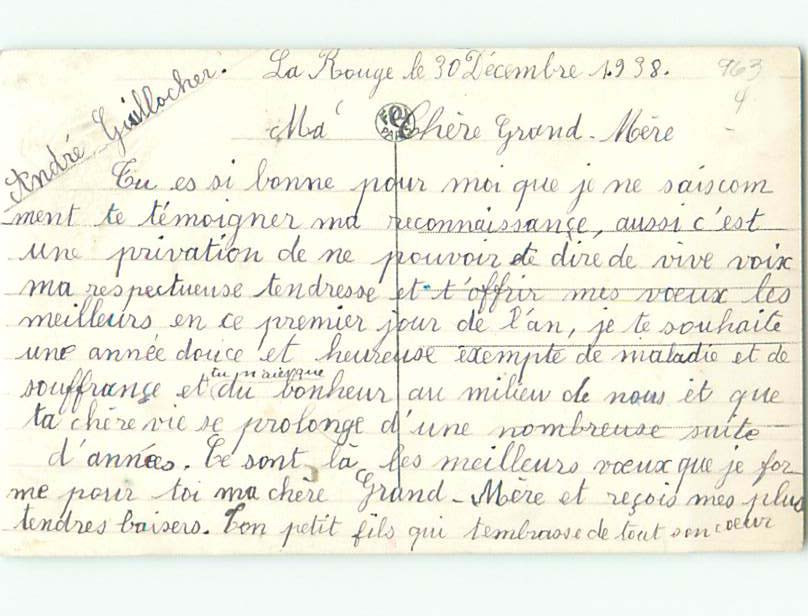 La Rouge le 30 Décembre 1938.
963
4
André Guillocher.
Ma Chère Grand-Mère
Tu es si bonne pour moi que je ne sais com
ment te témoigner ma reconnaissance, aussi c'est
une privation de ne pouvoir te dire de vive voix
ma respectueuse tendresse et t'offrir mes vœux les
meilleurs en ce premier jour de l'an, je te souhaite
une année douce et heureuse exempte de maladie et de
souffrance et du bonheur au milieu de nous et que
ta chère vie se prolonge d'une nombreuse suite
d'années. Ce sont là les meilleurs vœux que je for
me pour toi ma chère Grand-Mère et reçois mes plus
tendres baisers. Ton petit fils qui t'embrasse de tout son coeur